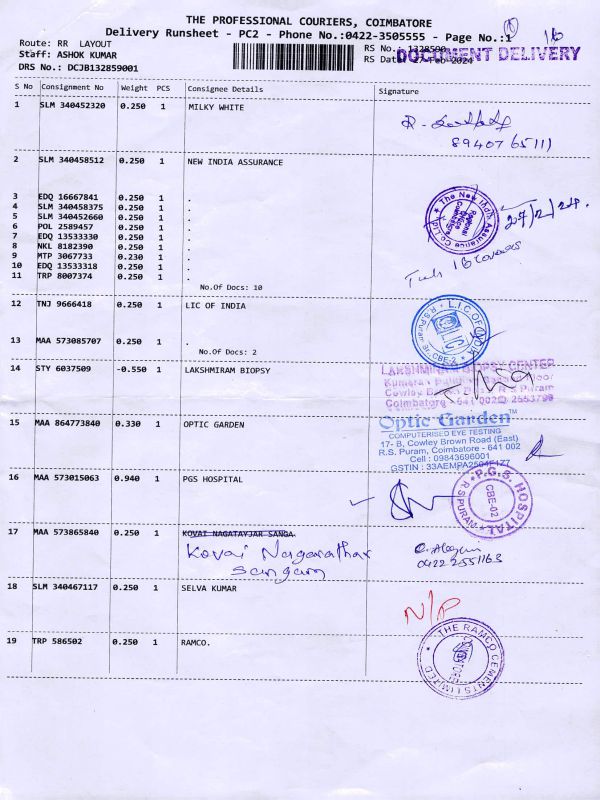 THE PROFESSIONAL COURIERS, COIMBATORE
Delivery Runsheet - PC2 - Phone No.:0422-3505555 - Page No.:1
Route: RR LAYOUT
Staff: ASHOK KUMAR
DRS No.: DCJB132859001
RS No. 1328590
RS Dat 27-Feb-2024
DOCUMENT DELIVERY
S No Consignment No Weight PCS Consignee Details Signature
1 SLM 340452320 0.250 1 MILKY WHITE
89407 65111
2 SLM 340458512 0.250 1 NEW INDIA ASSURANCE
3 EDQ 16667841 0.250 1 .
4 SLM 340458375 0.250 1 .
5 SLM 340452660 0.250 1 .
6 POL 2589457 0.250 1 .
7 EDQ 13533330 0.250 1 .
8 NKL 8182390 0.250 1 .
9 MTP 3067733 0.230 1 .
10 EDQ 13533318 0.250 1 .
11 TRP 8007374 0.250 1 .
No.Of Docs: 10
The New India Assurance Co. Ltd.
Regional Office
Coimbatore
27/2/24
12 TNJ 9666418 0.250 1 LIC OF INDIA
13 MAA 573085707 0.250 1 .
No.Of Docs: 2
L.I.C OF INDIA
R.S.Puram
CBE-2
14 STY 6037509 -0.550 1 LAKSHMIRAM BIOPSY
LAKSHMIRAM BIOPSY CENTER
Cowley B R.S Puram
Coimbatore - 641 002 2553799
15 MAA 864773840 0.330 1 OPTIC GARDEN
Optic Garden™
COMPUTERISED EYE TESTING
17- B, Cowley Brown Road (East)
R.S. Puram, Coimbatore - 641 002
Cell : 09843696001
GSTIN : 33AEMPA2564F1Z7
16 MAA 573015063 0.940 1 PGS HOSPITAL
P.G.S. HOSPITAL
CBE-02
R S PURAM
17 MAA 573865840 0.250 1 KOVAI NAGATAYJAR SANGA.
Kovai Nagarathar
Sangam
0422 2551163
18 SLM 340467117 0.250 1 SELVA KUMAR
N/P
19 TRP 586502 0.250 1 RAMCO.
THE RAMCO CEMENTS LIMITED